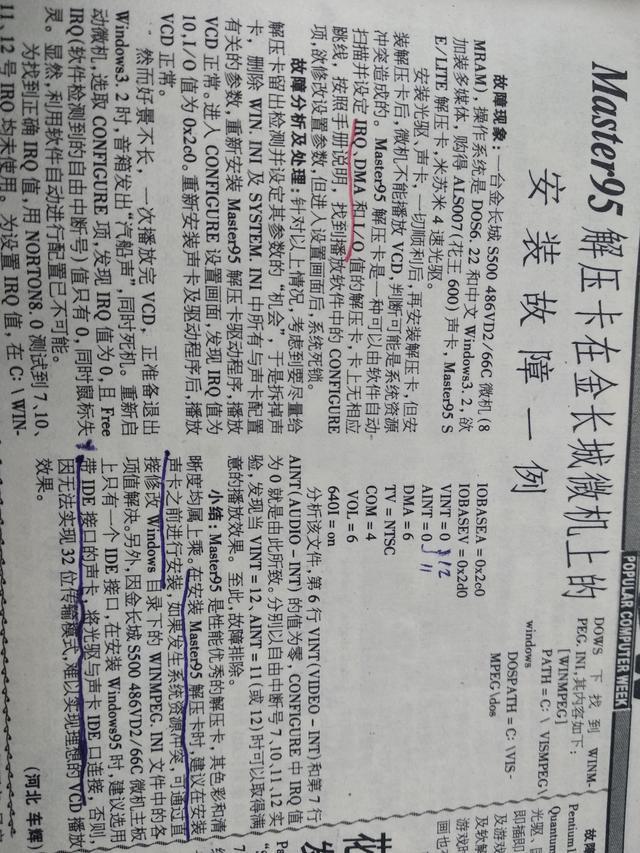 POPULAR COMPUTER WEEK
Master95 解压卡在金长城微机上的
安装故障一例
故障现象：一台金长城 S500 486VD2/66C 微机(8
MRAM)，操作系统是 DOS6.22 和中文 Windows3.2，欲
加装多媒体，购得 ALS007(花王 600)声卡，Master95 S
E/LITE 解压卡，米苏米 4 速光驱。
安装光驱、声卡，一切顺利后，再安装解压卡，但安
装解压卡后，微机不能播放 VCD，判断可能是系统资源
冲突造成的。Master95 解压卡是一种可以由软件自动
扫描并设定 IRQ、DMA 和 I/O 值的解压卡，卡上无相应
跳线，按照手册说明，找到播放软件中的 CONFIGURE
项，欲修改设置参数，但进入设置画面后，系统死锁。
故障分析及处理：针对以上情况，考虑到要尽量给
解压卡留出检测并设定其参数的“机会”，于是拆掉声
卡，删除 WIN.INI 及 SYSTEM.INI 中所有与声卡配置
有关的参数，重新安装 Master95 解压卡驱动程序，播放
VCD 正常。进入 CONFIGURE 设置画面，发现 IRQ 值为
10，I/O 值为 0x2e0。重新安装声卡及驱动程序后，播放
VCD 正常。
然而好景不长，一次播放完 VCD，正准备退出
Windows3.2 时，音箱发出“汽船声”，同时死机。重新启
动微机，选取 CONFIGURE 项，发现 IRQ 值为 0，且 Free
IRQ(软件检测到的自由中断号)值只有 0，同时鼠标失
灵。显然，利用软件自动进行配置已不可能。
为找到正确 IRQ 值，用 NORTON8.0 测试到 7、10、
11、12 号 IRQ 均未使用。为设置 IRQ 值，在 C:\WIN-
DOWS 下找到 WINM-
PEG.INI，其内容如下：
[WINMPEG]
PATH=C:\VISMPEG\
windows
DOSPATH=C:\VIS-
MPEG\dos
IOBASEA=0x2e0
IOBASEV=0x2d0
VINT=0 12
AINT=0 11
DMA=6
TV=NTSC
COM=4
VOL=6
640I=on
分析该文件，第 6 行 VINT(VIDEO-INT)和第 7 行
AINT(AUDIO-INT)的值为零，CONFIGURE 中 IRQ 值
为 0 就是由此所致。分别以自由中断号 7、10、11、12 实
验，发现当 VINT=12、AINT=11(或 12)时可以取得满
意的播放效果。至此，故障排除。
小结：Master95 是性能优秀的解压卡，其色彩和清
晰度均属上乘。在安装 Master95 解压卡时，建议在安装
声卡之前进行安装，如果发生系统资源冲突，可通过直
接修改 Windows 目录下的 WINMPEG.INI 文件中的各
项值解决。另外，因金长城 S500 486VD2/66C 微机主板
上只有一个 IDE 接口，在安装 Windows95 时，建议选用
带 IDE 接口的声卡，将光驱与声卡 IDE 口连接，否则，
因无法实现 32 位传输模式，难以实现理想的 VCD 播放
效果。
(河北 车辉)
故障
Pentium1
Quantum
光驱、日
即插即
及游戏
及软解
游戏时
画也不